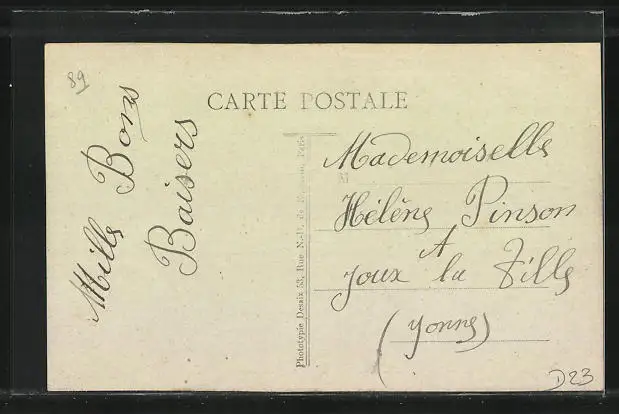 89
CARTE POSTALE
Mille Bons
Baisers
Phototypie Desaix 53, Rue N.-D. de Paris
M
Mademoiselle
Hélène Pinson
A
Joux la Ville
(Yonne)
D23